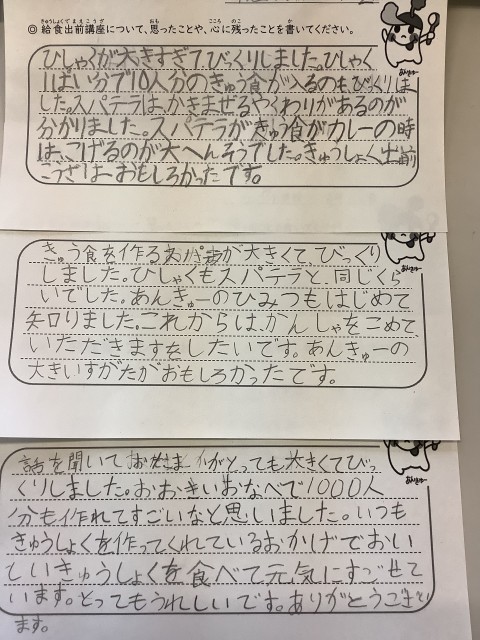 きゅうしょくでまえこうざ おも こころ のこ か
◎ 給食出前講座について、思ったことや、心に残ったことを書いてください。
ひしゃくが大きすぎてびっくりしました。ひしゃく
1ぱい分で10人分のきゅう食が入るのも、びっくりしま
した。スパテラは、かきまぜるやくわりがあるのが
分かりました。スパテラがきゅう食がカレーの時
は、こげるのが大へんそうでした。きゅうしょく出前
こうざは、おもしろかったです。
あんきゅー
きゅう食を作るおなべが大きくて、びっくり
しました。ひしゃくもスパテラと、同じくら
いでした。あんきゅーのひみつもはじめて
知りました。これからは、かんしゃをこめて、
いただきますをしたいです。あんきゅーの
大きいすがたがおもしろかったです。
あんきゅー
話を聞いて がとっても大きくてびっ
くりしました。おおきいおなべで1000人
分も作れてすごいなと思いました。いつも
きゅうしょくを作ってくれているおかげでおい
しいきゅうしょくを食べて元気にすごせて
います。とってもうれしいです。ありがとうござい
ます。
あんきゅー